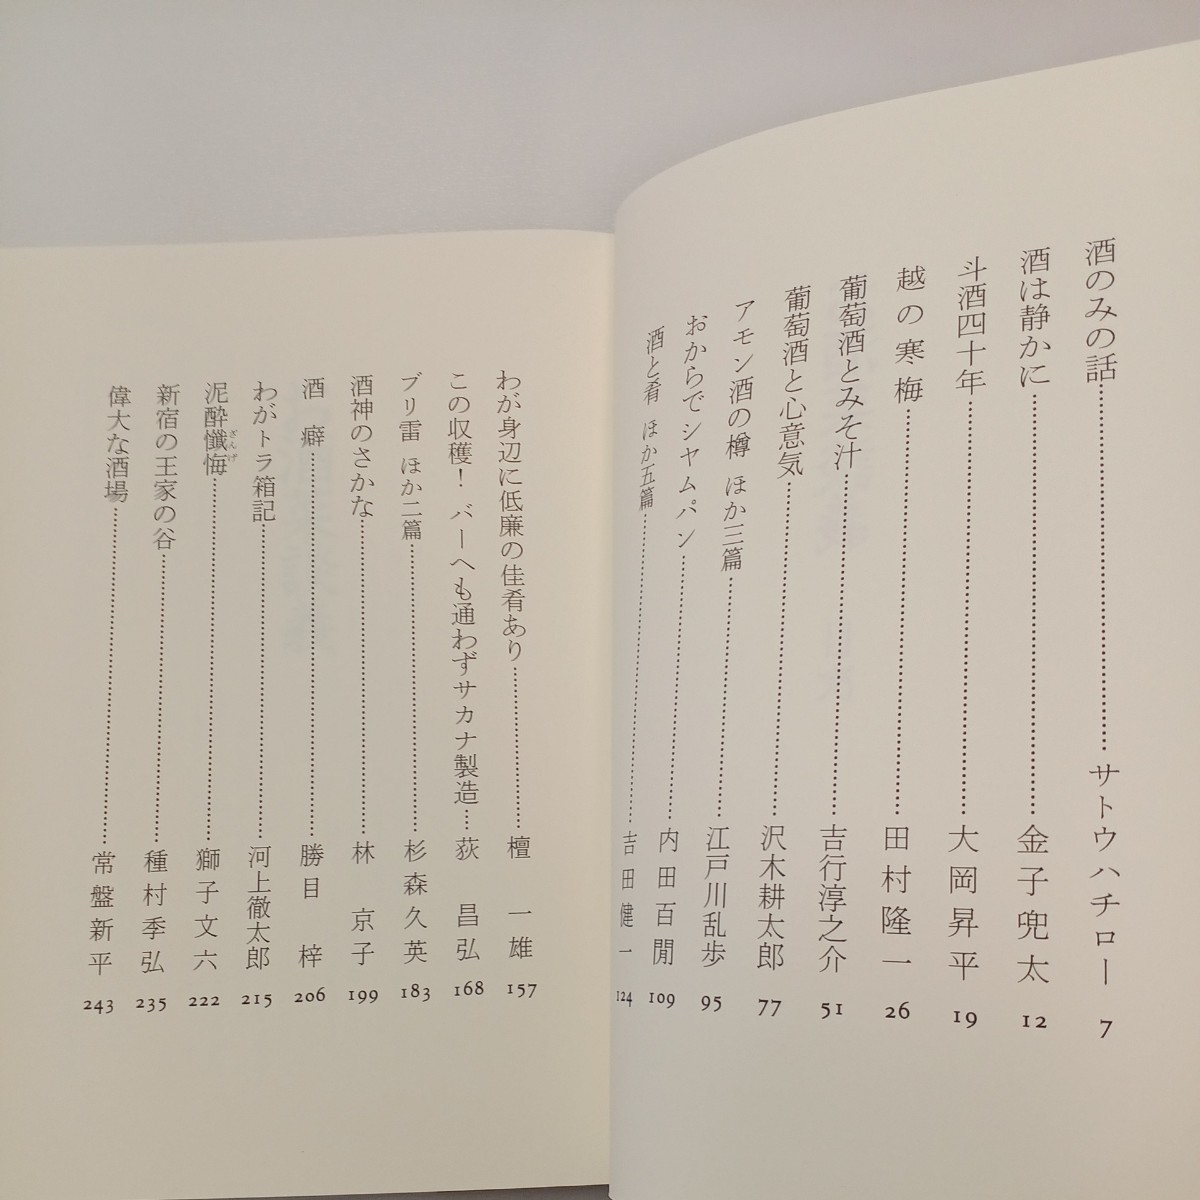 酒のみの話……サトウハチロー 7
酒は静かに……金子兜太 12
斗酒四十年……大岡昇平 19
越の寒梅……田村隆一 26
葡萄酒とみそ汁……吉行淳之介 51
葡萄酒と心意気……沢木耕太郎 77
アモン酒の樽 ほか三篇……江戸川乱歩 95
おからでシャムパン……内田百閒 109
酒と肴 ほか五篇……吉田健一 124
わが身辺に低廉の佳肴あり……檀一雄 157
この収穫！ バーへも通わずサカナ製造…荻昌弘 168
ブリ雷 ほか二篇……杉森久英 183
酒神のさかな……林京子 199
酒癖……勝目梓 206
わがトラ箱記……河上徹太郎 215
泥酔懺悔ざんげ……獅子文六 222
新宿の王家の谷……種村季弘 235
偉大な酒場……常盤新平 243